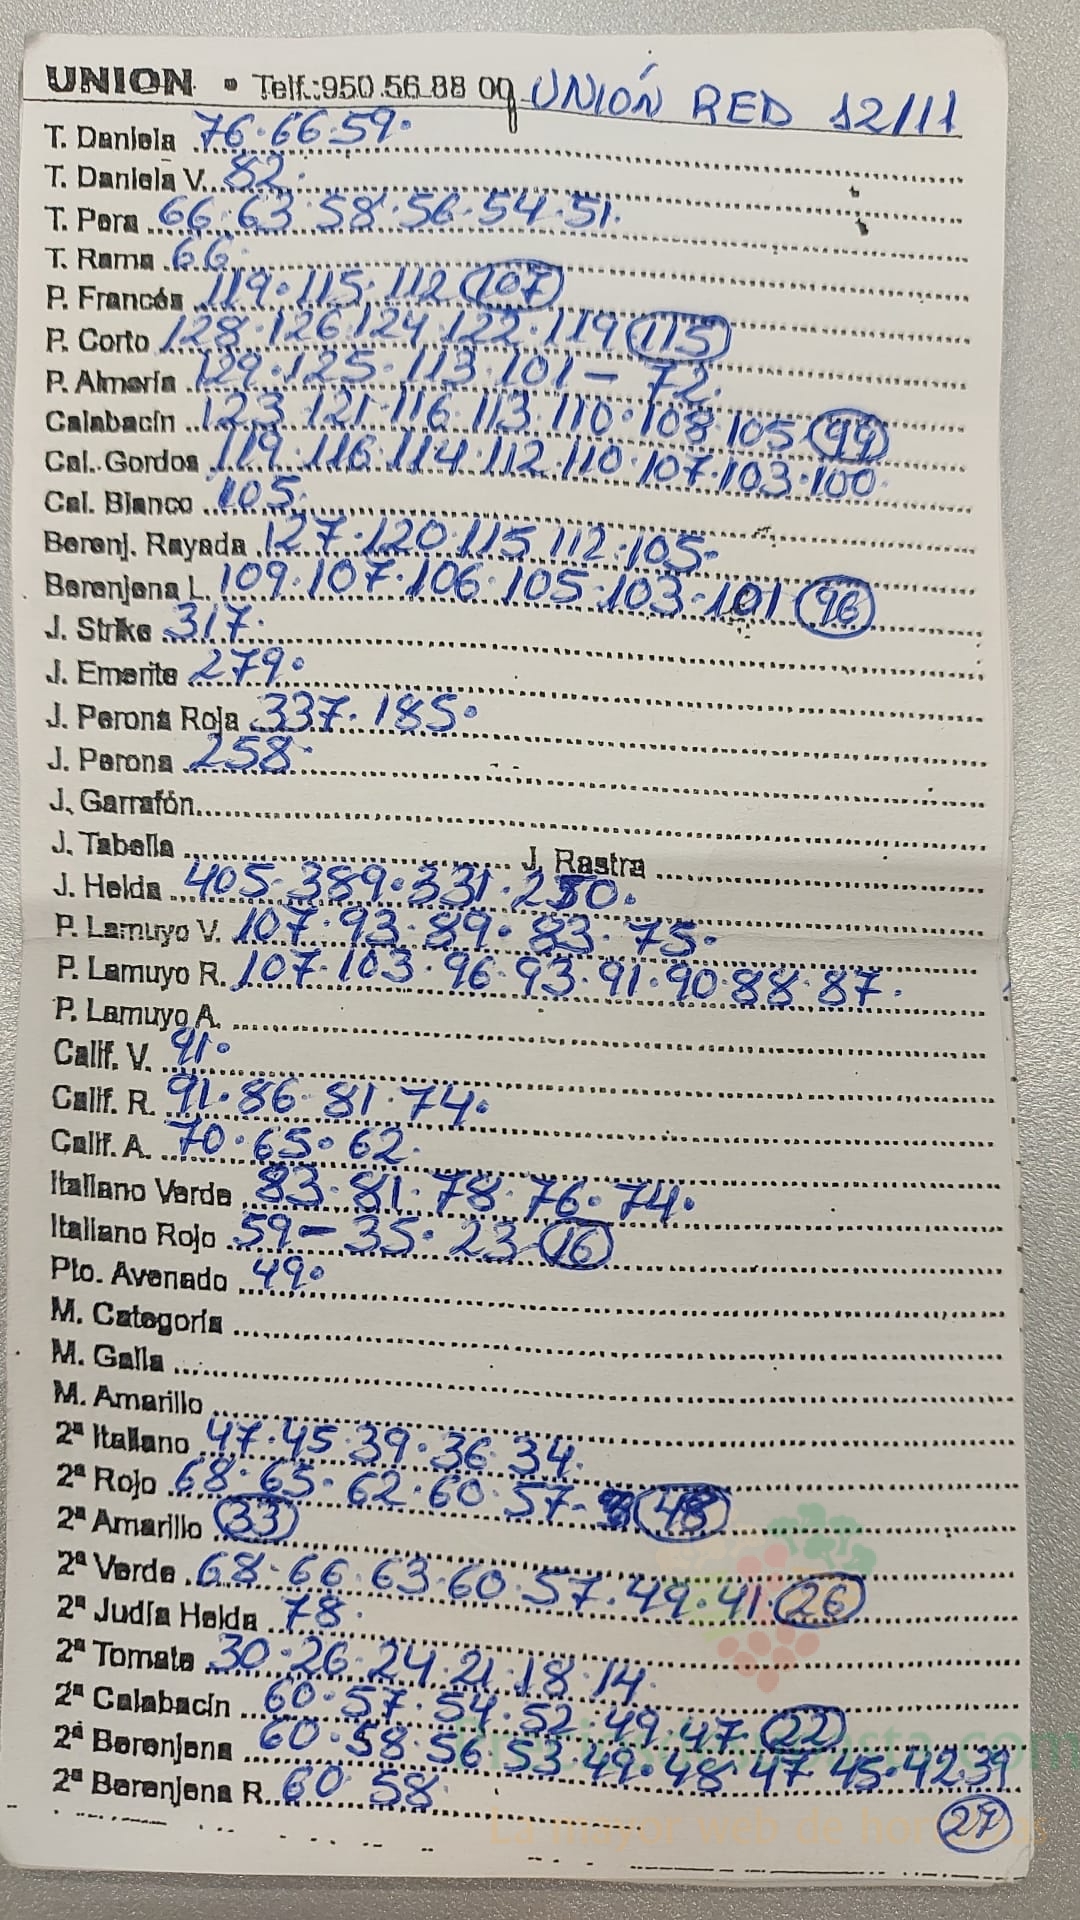 UNION • Telf.:950.56.88 09 UNIÓN RED 12/11
T. Daniela 76.66.59.
T. Daniela V. 82.
T. Pera 66.63.58.56.54.51.
T. Rama 66.
P. Francés 119.115.112 (107)
P. Corto 128.126.124.122.119 (115)
P. Almería 129.125.113.101 – 72.
Calabacín 123.121.116.113.110.108.105 (99)
Cal. Gordos 119.116.114.112.110.107.103.100.
Cal. Blanco 105.
Berenj. Rayada 127.120.115.112.105.
Berenjena L. 109.107.106.105.103.101 (96)
J. Strike 317.
J. Emerite 279.
J. Perona Roja 337.185.
J. Perona 258.
J. Garrafón
J. Tabella J. Rastra
J. Helda 405.389.331.250.
P. Lamuyo V. 107.93.89.83.75.
P. Lamuyo R. 107.103.96.93.91.90.88.87.
P. Lamuyo A.
Calif. V. 91.
Calif. R. 91.86.81.74.
Calif. A. 70.65.62.
Italiano Verde 83.81.78.76.74.
Italiano Rojo 59 – 35.23 (16)
Pto. Avenado 49.
M. Categoría
M. Galla
M. Amarillo
2ª Italiano 47.45.39.36.34.
2ª Rojo 68.65.62.60.57 - (48)
2ª Amarillo (33)
2ª Verde 68.66.63.60.57.49.41 (26)
2ª Judía Helda 78.
2ª Tomate 30.26.24.21.18.14.
2ª Calabacín 60.57.54.52.49.47 (22)
2ª Berenjena 60.58.56.53.49.48.47.45.42.39
2ª Berenjena R. 60.58. (27)
La mayor web de hortalizas